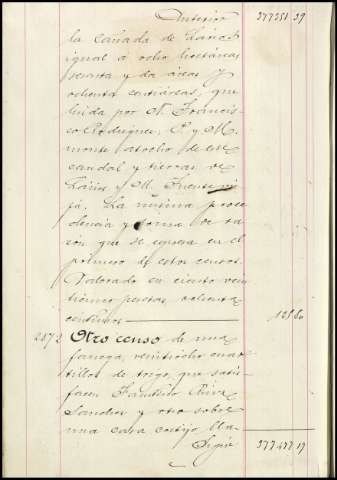 Anterior 377351 39
la Cañada de
igual á ocho hectáreas
sesenta y dos áreas y
ochenta centiáreas, que
linda por N. Francis-
co Rodriguez, P. y M.
monte atocho de este
caudal y tierras de
y M. Fuente
La misma proce-
dencia y forma de ra-
zón que se expresa en el
primero de estos censos.
Valorado en ciento vein-
ticinco pesetas ochenta
centimos 125 80
2872 Otro censo de una
fanega, veintiocho cuar-
tillos de trigo, que satis-
facen
Sanchez y otro sobre
una casa cortijo lla-
Sigue 377477 19